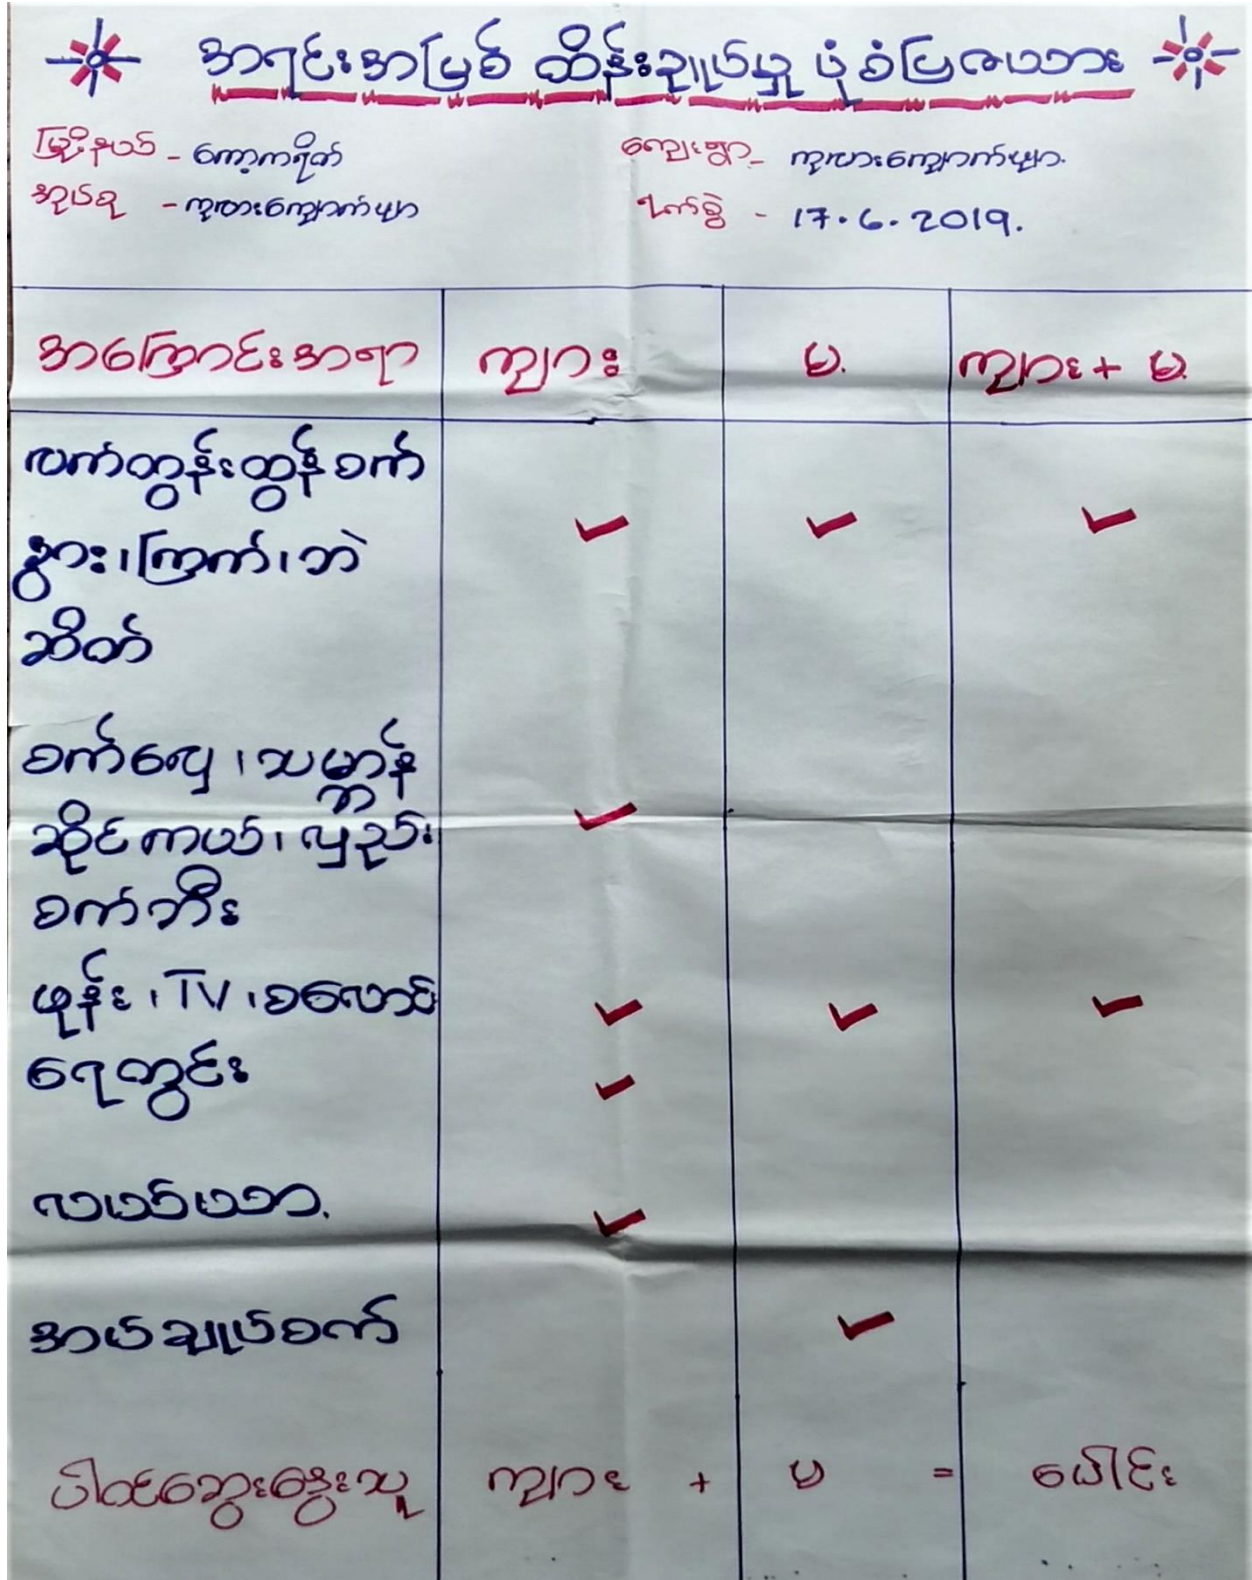 အရင်းအမြစ် ထိန်းချုပ်မှု ပုံစံပြဇယား
မြို့နယ် - ကော့ကရိတ် ကျေးရွာ - ကုလားကျောက်များ
အုပ်စု - ကုလားကျောက်များ ရက်စွဲ - 17.6.2019.
အကြောင်းအရာ ကျား မ. ကျား + မ.
လက်တွန်းထွန်စက်
နွား၊ ကြက်၊ ဘဲ
ဆိတ်
စက်လှေ၊ သမ္ဗာန်
ဆိုင်ကယ်၊ လှည်း
စက်ဘီး
ဖုန်း၊ TV၊ စလောင်း
ရေတွင်း
လယ်ယာ.
အပ်ချုပ်စက်
ပါဝင်ဆွေးနွေးသူ ကျား + မ = ပေါင်း